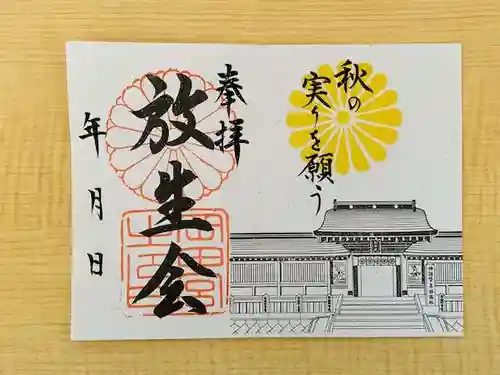 秋の
実りを願う
奉拝
放生会
年月日